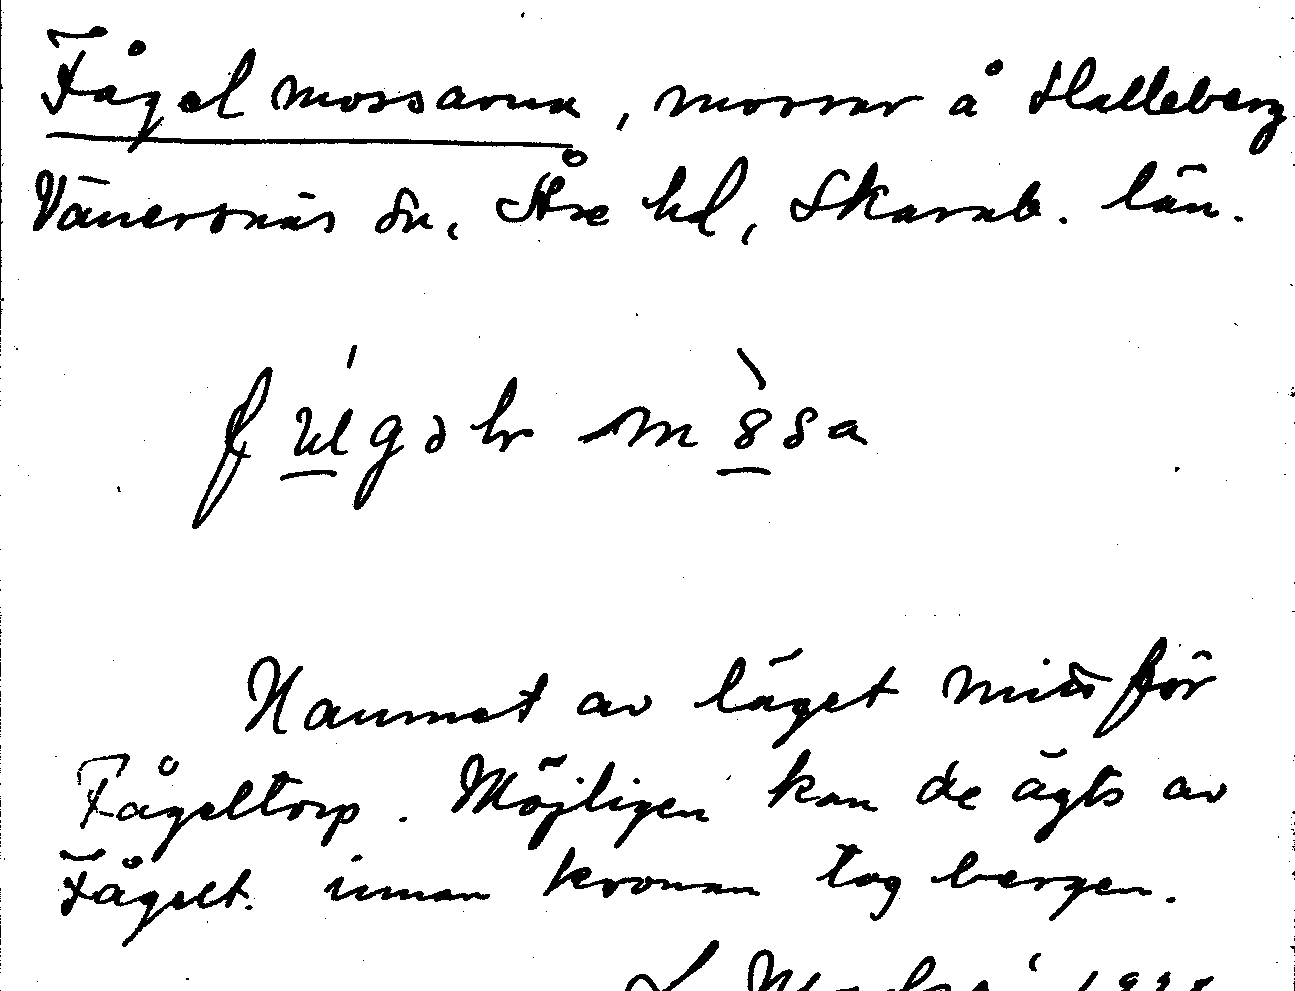 Fågelmossarna, mossar å Halleberg
Vänersnäs sn, Åse hd, Skarab. län.
Namnet av läget mitt för
Fågeltorp. Möjligen kan de ägts av
Fågelt. innan kronan tog bergen.